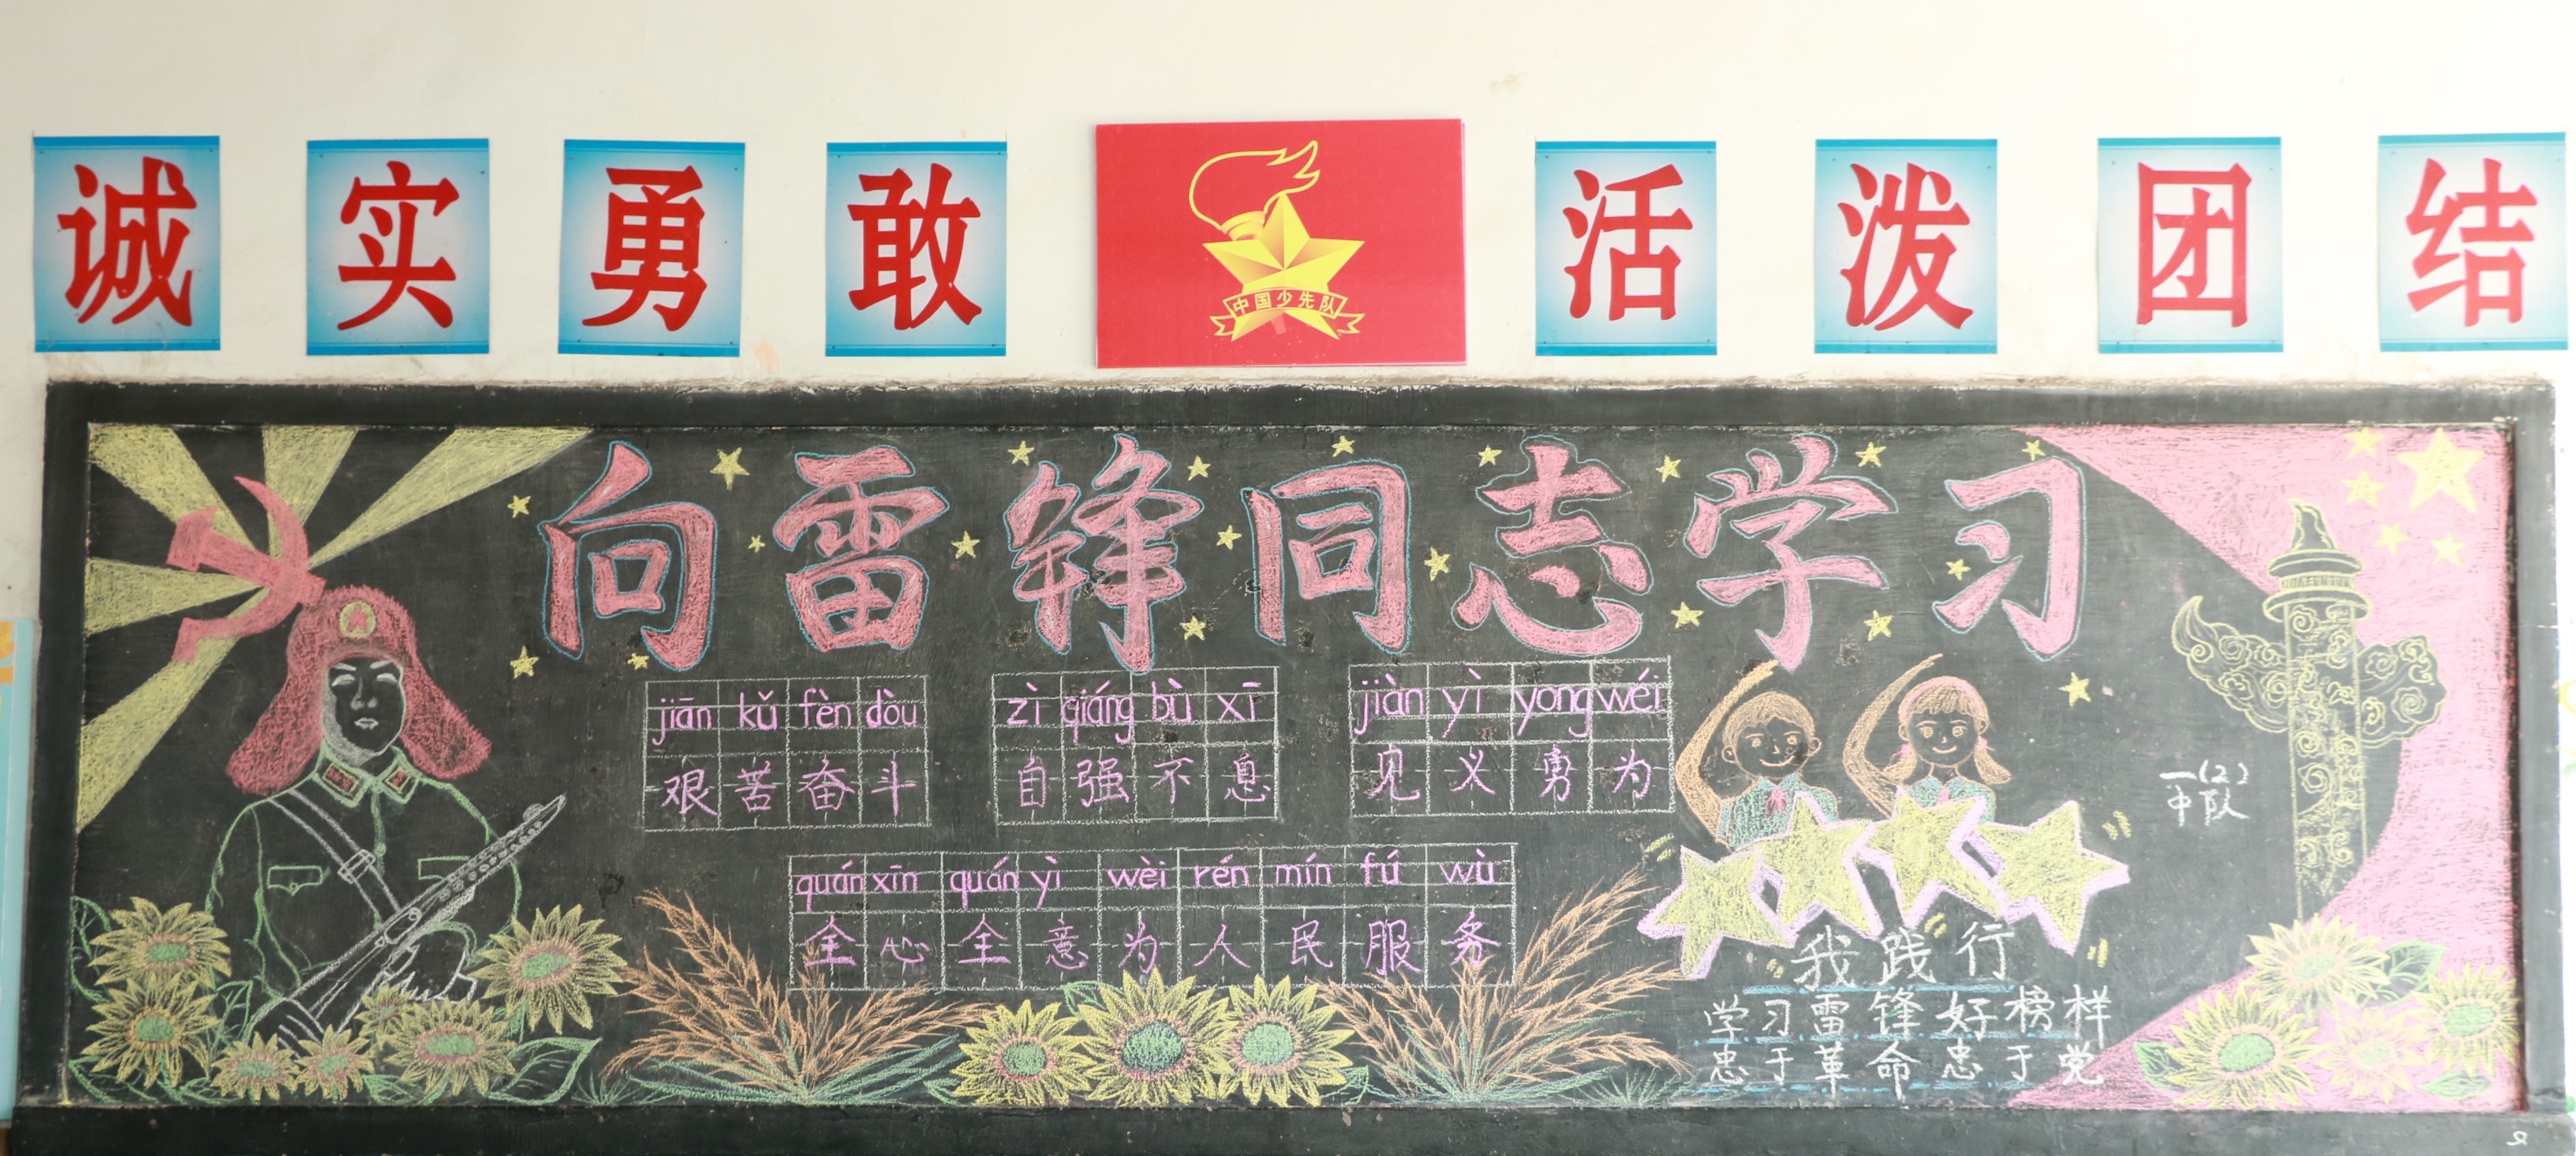 诚实勇敢 活泼团结
中国少先队
向雷锋同志学习
jiān kǔ fèn dòu
艰苦奋斗
zì qiáng bù xī
自强不息
jiàn yì yong wéi
见义勇为
quán xīn quán yì wèi rén mín fú wù
全心全意为人民服务
一(2)
中队
我践行
学习雷锋好榜样
忠于革命忠于党